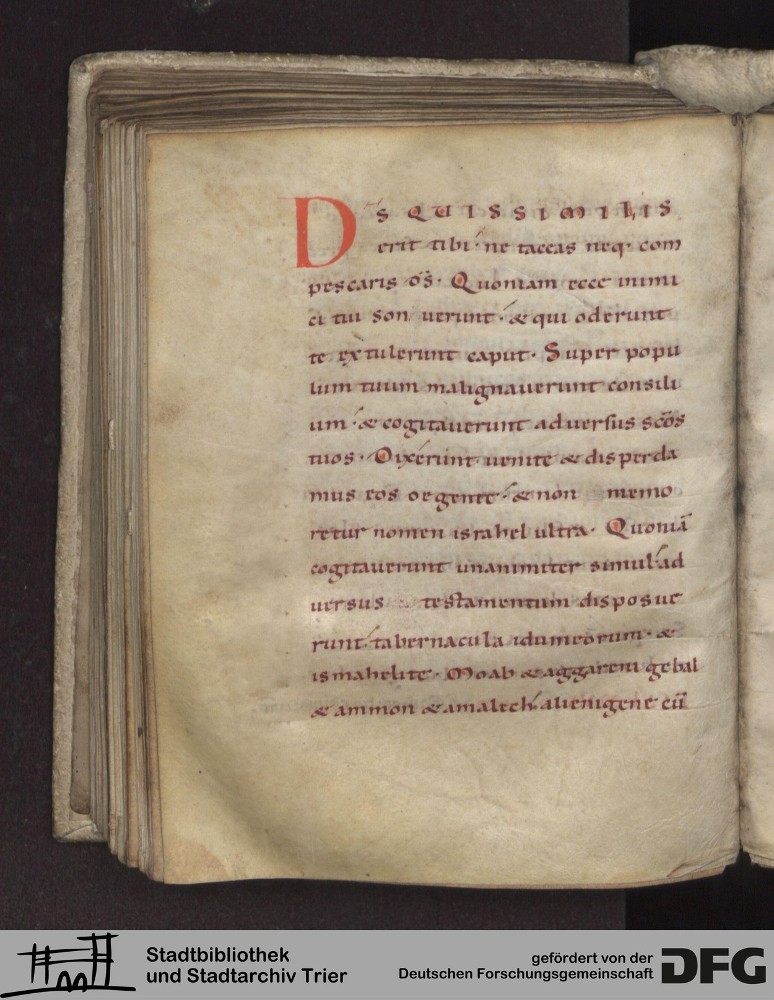 D s̄ QUISSIMILIS
erit tibi· ne taceas neq· com
pescaris d̄s· Quoniam ecce inimi
ci tui son uerunt· & qui oderunt
te extulerunt caput· Super popu
lum tuum malignauerunt consili
um· & cogitauerunt aduersus scōs
tuos· Dixerunt uenite & disperda
mus eos de gente· & non memo
retur nomen israhel ultra· Quoniā
cogitauerunt unanimiter simul· ad
uersus testamentum disposue
runt· tabernacula idumeorum· &
ismahelite· Moab & aggareni gebal
& ammon & amalech· alienigene cū
Stadtbibliothek
und Stadtarchiv Trier
gefördert von der
Deutschen Forschungsgemeinschaft DFG